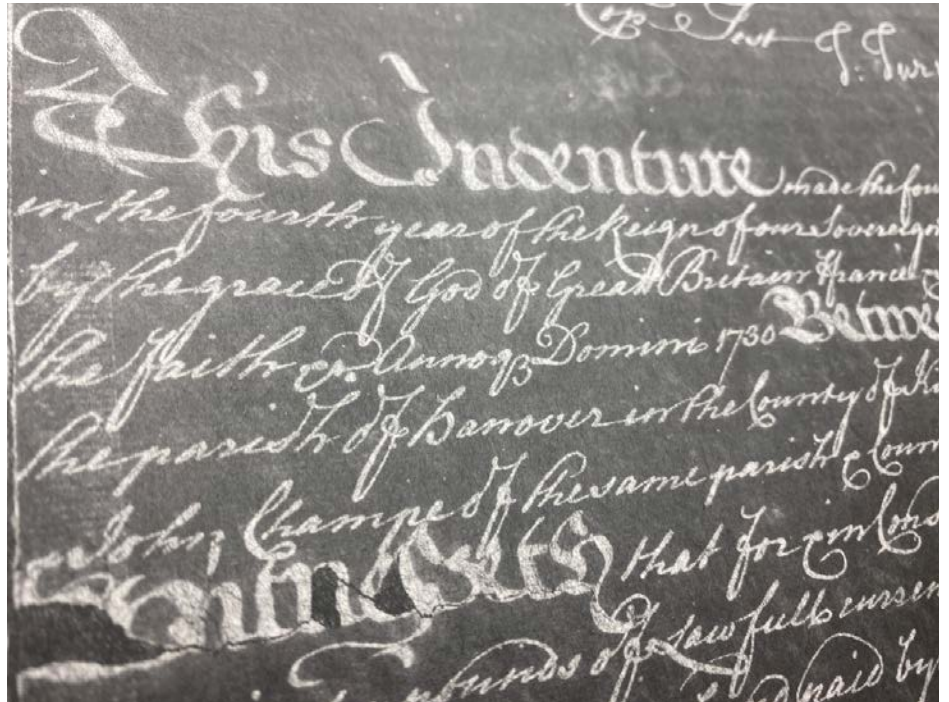 Cop Test J: Tur
This Indenture made the fou
in the fourth year of the Reign of our Sovereign
by the grace of God of Great Britain France &
the Faith &c. Annoq3 Domini 1730 Betwe
the parish of Hanover in the County of Ki
John Champe of the same parish & Coun
Witnesseth that for & in Cons
pounds of Lawfull curren
paid by